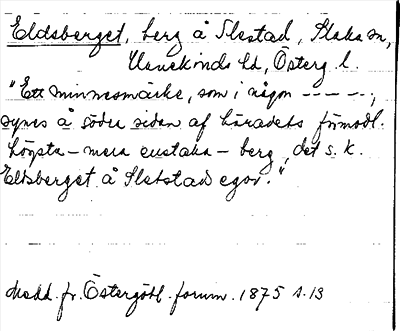 Eldsberget, berg å Slestad, Slaka sn,
Hanekinds hd, Österg. l.
"Ett minnesmärke, som i någon -- -- --,
synes å södra sidan af häradets förmodl.
högsta - mera enstaka - berg, det s. k.
Eldsberget å Sletstad egor."
Medd. fr. Östergötl. fornm. 1875 s. 13